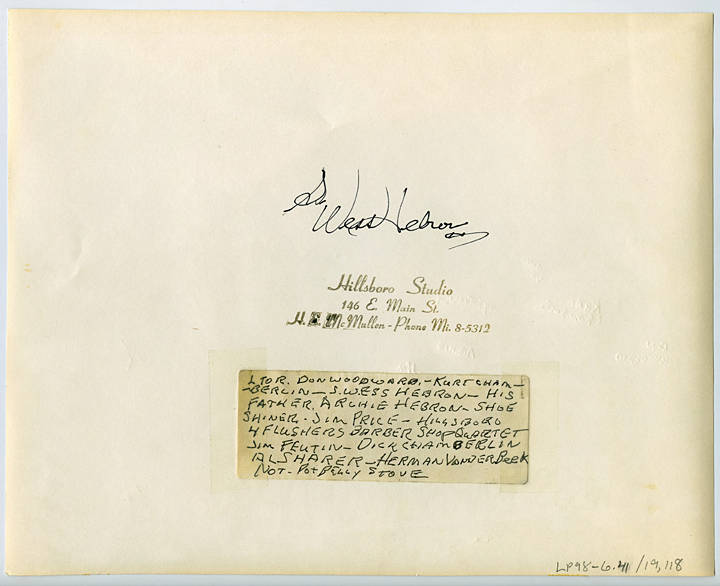 S. Wess Hebron
Hillsboro Studio
146 E. Main St.
H. E. McMullen - Phone Mi. 8-5312
L TOR. DON WOODWARD. - KURT CHAM-
-BERLIN - S. WESS HEBRON - HIS
FATHER, ARCHIE HEBRON - SHOE
SHINER - JIM PRICE - HILLSBORO
4 FLUSHERS BARBER SHOP QUARTET
JIM FEUTIN - DICK CHAMBERLIN
AL SHARER - HERMAN VANDERBEEK
NOT - POT BELLY STOVE
LP98-6.41 / 19,118